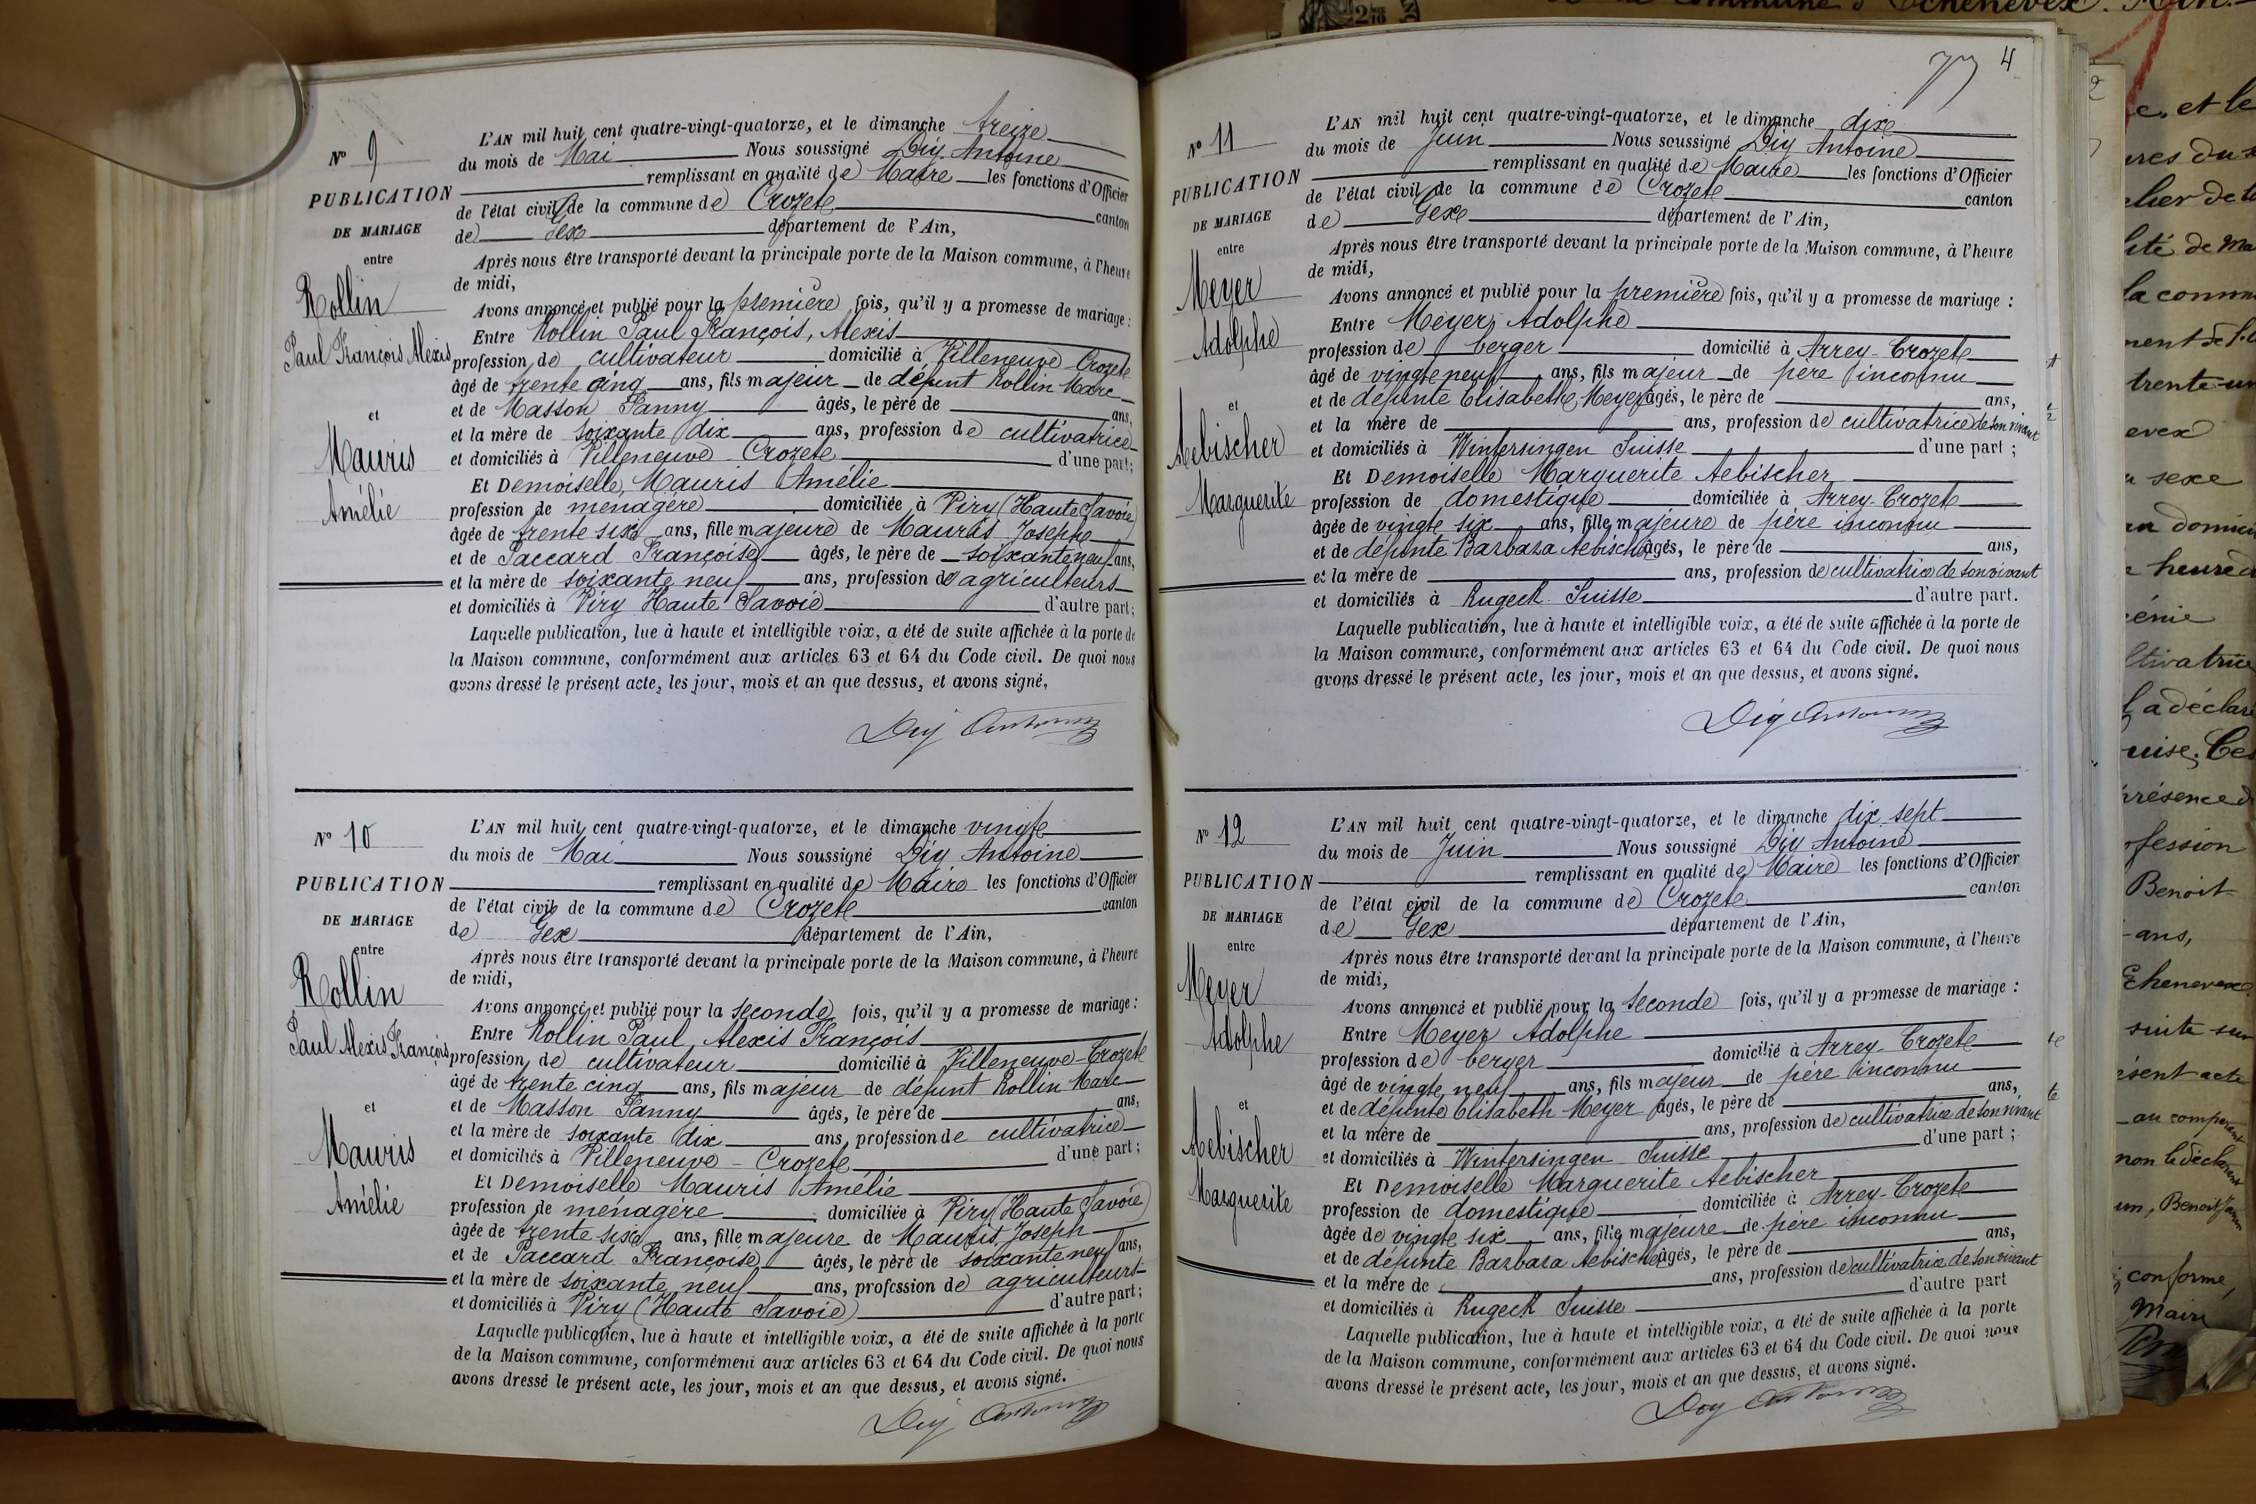 N° 9
PUBLICATION
DE MARIAGE
entre
Rollin
Paul François Alexis
et
Mauris
Amélie
L'AN mil huit cent quatre-vingt-quatorze, et le dimanche treize
du mois de Mai Nous soussigné Diy Antoine
remplissant en qualité de Maire les fonctions d'Officier
de l'état civil de la commune de Crozet canton
de Gex département de l'Ain,
Après nous être transporté devant la principale porte de la Maison commune, à l'heure
de midi,
Avons annoncé et publié pour la première fois, qu'il y a promesse de mariage :
Entre Rollin Paul François, Alexis
profession de cultivateur domicilié à Villeneuve Crozet
âgé de trente cinq ans, fils majeur de défunt Rollin Marc
et de Masson Fanny âgés, le père de ans,
et la mère de soixante dix ans, profession de cultivatrice
et domiciliés à Villeneuve Crozet d'une part ;
Et Demoiselle Mauris Amélie
profession de ménagère domiciliée à Viry (Haute Savoie)
âgée de trente six ans, fille majeure de Mauris Joseph
et de Paccard Françoise âgés, le père de soixante neuf ans,
et la mère de soixante neuf ans, profession d'agriculteurs
et domiciliés à Viry Haute Savoie d'autre part ;
Laquelle publication, lue à haute et intelligible voix, a été de suite affichée à la porte de
la Maison commune, conformément aux articles 63 et 64 du Code civil. De quoi nous
avons dressé le présent acte, les jour, mois et an que dessus, et avons signé.
Diy Antoine
N° 10
PUBLICATION
DE MARIAGE
entre
Rollin
Paul Alexis François
et
Mauris
Amélie
L'AN mil huit cent quatre-vingt-quatorze, et le dimanche vingt
du mois de Mai Nous soussigné Diy Antoine
remplissant en qualité de Maire les fonctions d'Officier
de l'état civil de la commune de Crozet canton
de Gex département de l'Ain,
Après nous être transporté devant la principale porte de la Maison commune, à l'heure
de midi,
Avons annoncé et publié pour la seconde fois, qu'il y a promesse de mariage :
Entre Rollin Paul Alexis François
profession de cultivateur domicilié à Villeneuve-Crozet
âgé de trente cinq ans, fils majeur de défunt Rollin Marc
et de Masson Fanny âgés, le père de ans,
et la mère de soixante dix ans, profession de cultivatrice
et domiciliés à Villeneuve - Crozet d'une part ;
Et Demoiselle Mauris Amélie
profession de ménagère domiciliée à Viry (Haute Savoie)
âgée de trente six ans, fille majeure de Mauris Joseph
et de Paccard Françoise âgés, le père de soixante neuf ans,
et la mère de soixante neuf ans, profession de agriculteurs
et domiciliés à Viry (Haute Savoie) d'autre part ;
Laquelle publication, lue à haute et intelligible voix, a été de suite affichée à la porte
de la Maison commune, conformément aux articles 63 et 64 du Code civil. De quoi nous
avons dressé le présent acte, les jour, mois et an que dessus, et avons signé.
Diy Antoine
4
N° 11
PUBLICATION
DE MARIAGE
entre
Meyer
Adolphe
et
Aebischer
Marguerite
L'AN mil huit cent quatre-vingt-quatorze, et le dimanche dix
du mois de Juin Nous soussigné Diy Antoine
remplissant en qualité de Maire les fonctions d'Officier
de l'état civil de la commune de Crozet canton
de Gex département de l'Ain,
Après nous être transporté devant la principale porte de la Maison commune, à l'heure
de midi,
Avons annoncé et publié pour la première fois, qu'il y a promesse de mariage :
Entre Meyer, Adolphe
profession de berger domicilié à Arrey-Crozet
âgé de vingt neuf ans, fils majeur de père inconnu
et de défunte Elisabeth Meyer âgés, le père de ans,
et la mère de ans, profession de cultivatrice de son vivant
et domiciliés à Wintersingen Suisse d'une part ;
Et Demoiselle Marguerite Aebischer
profession de domestique domiciliée à Arrey-Crozet
âgée de vingt six ans, fille majeure de père inconnu
et de défunte Barbara Aebischer âgés, le père de ans,
et la mère de ans, profession de cultivatrice de son vivant
et domiciliés à Rugeck Suisse d'autre part.
Laquelle publication, lue à haute et intelligible voix, a été de suite affichée à la porte de
la Maison commune, conformément aux articles 63 et 64 du Code civil. De quoi nous
avons dressé le présent acte, les jour, mois et an que dessus, et avons signé.
Diy Antoine
N° 12
PUBLICATION
DE MARIAGE
entre
Meyer
Adolphe
et
Aebischer
Marguerite
L'AN mil huit cent quatre-vingt-quatorze, et le dimanche dix sept
du mois de Juin Nous soussigné Diy Antoine
remplissant en qualité de Maire les fonctions d'Officier
de l'état civil de la commune de Crozet canton
de Gex département de l'Ain,
Après nous être transporté devant la principale porte de la Maison commune, à l'heure
de midi,
Avons annoncé et publié pour la seconde fois, qu'il y a promesse de mariage :
Entre Meyer Adolphe
profession de berger domicilié à Arrey-Crozet
âgé de vingt neuf ans, fils majeur de père inconnu
et de défunte Elisabeth Meyer âgés, le père de ans,
et la mère de ans, profession de cultivatrice de son vivant
et domiciliés à Wintersingen Suisse d'une part ;
Et Demoiselle Marguerite Aebischer
profession de domestique domiciliée à Arrey-Crozet
âgée de vingt six ans, fille majeure de père inconnu
et de défunte Barbara Aebischer âgés, le père de ans,
et la mère de ans, profession de cultivatrice de son vivant
et domiciliés à Rugeck Suisse d'autre part
Laquelle publication, lue à haute et intelligible voix, a été de suite affichée à la porte
de la Maison commune, conformément aux articles 63 et 64 du Code civil. De quoi nous
avons dressé le présent acte, les jour, mois et an que dessus, et avons signé.
Diy Antoine
et le
de Ma
trente-un
sexe
heure
a déclaré
Benoit
ans,
Echenevex
suite sur
présent acte
au comparant
Benoit
conforme,
Maire